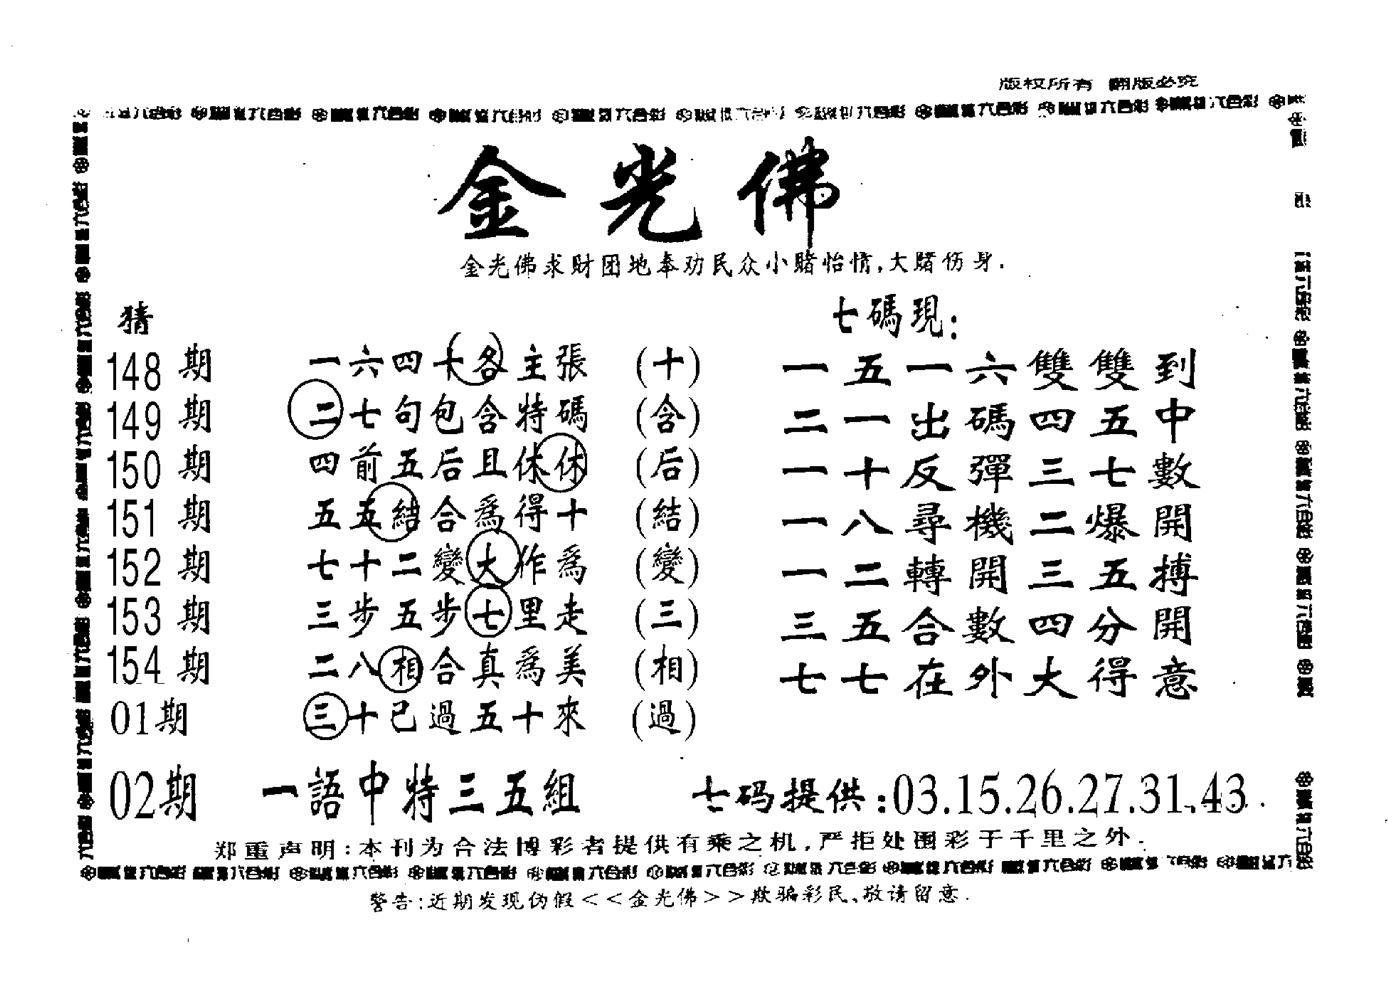 版权所有 翻版必究
金光佛
金光佛求财团地奉劝民众小赌怡情,大赌伤身.
猜
七碼現:
148期 一六四十各主張 (十) 一五一六雙雙到
149期 二七句包含特碼 (含) 二一出碼四五中
150期 四前五后且休休 (后) 一十反彈三七數
151期 五五結合為得十 (結) 一八尋機二爆開
152期 七十二變大作為 (變) 一二轉開三五搏
153期 三步五步七里走 (三) 三五合數四分開
154期 二八相合真為美 (相) 七七在外大得意
01期 三十已過五十來 (過)
02期 一語中特三五組 七码提供:03.15.26.27.31.43.
郑重声明:本刊为合法博彩者提供有乘之机,严拒处围彩于千里之外.
警告:近期发现伪假<<金光佛>>欺骗彩民,敬请留意.